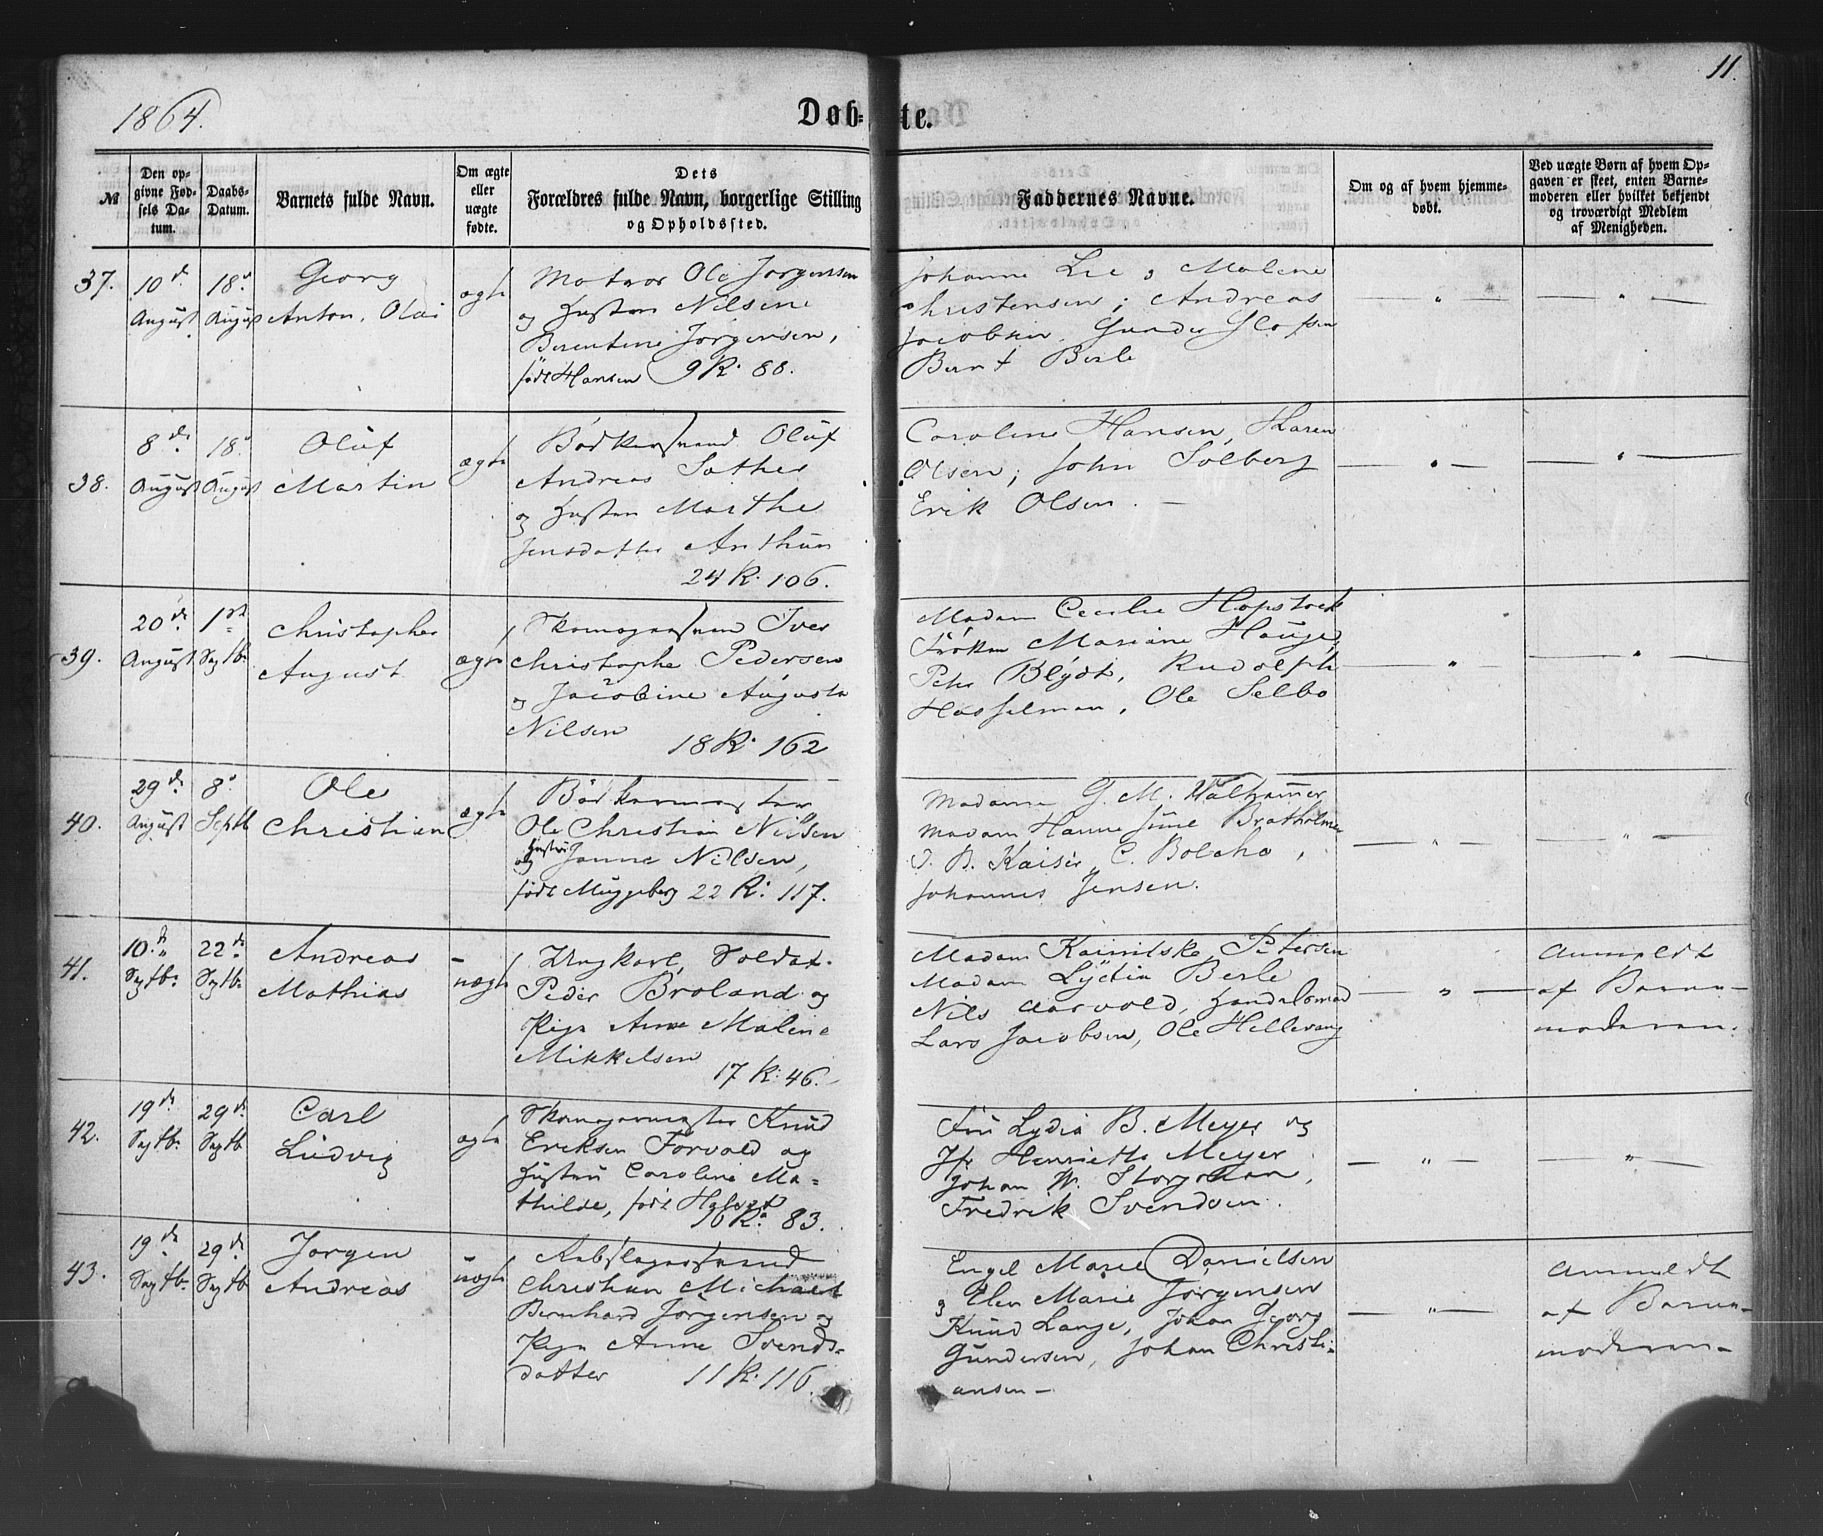 11.
1864.
Døb-te.
№
Den op-
givne Fød-
sels Da-
tum.
Daabs-
Datum.
Barnets fulde Navn.
Om ægte
eller
uægte
fødte.
Dets
Forældres fulde Navn, borgerlige Stilling
og Opholdssted.
Faddernes Navne.
Om og af hvem hjemme-
døbt.
Ved uægte Børn af hvem Op-
gaven er skeet, enten Barne-
moderen eller hvilket bekjendt
og troværdigt Medlem
af Menigheden.
37.
10 d
August
18 d
August
Georg
Anton Olai
ægte
Matros Ole Jørgensen
og Hustru Nilsine
Berentine Jørgensen,
født Hansen 9 R. 88.
Johanne Lie & Malene
Christensen; Andreas
Jacobsen, Gunder
Bernt Berle
— " —
— " —
38.
8 de
August
18 d
August
Oluf
Martin
ægte
Bødkersvend Oluf
Andreas Sæther
og Hustru Marthe
Jensdatter Anthun
24 R. 106.
Caroline Hansen, Karen
Olsen; John Solberg
Erik Olsen. —
— " —
— " —
39.
20 de
August
1 ste
Septb.
Christopher
August
ægte
Skomagersvend Iver
Christopher Pedersen
og Jacobine Augusta
Nilsen 18 R. 162
Madam Cecilie Hopstock
Frøken Mariane Hauge,
Peter Blydt, Rudolph
Hasselman, Ole Selbo
— " —
— " —
40.
29 de
August
8 d
Septb
Ole
Christian
ægte
Bødkermester
Ole Christian Nilsen
og Hustru Janne Nilsen,
født Muggeberg 22 R. 117.
Madame G. M.
Madam Hanne Bratholmer
J. B. Kaiser, C. Bolcho,
Johannes Jensen.
— " —
— " —
41.
10.
Septb.
22 de
Septb.
Andreas
Mathias
uægte
Soldat
Peder Broland og
Pige Anne Malene
Mikkelsen 17 R. 46.
Madam Petersen
Madam Lydia Berle
Nils Aarvold, Handelsmad
Lars Jacobsen, Ole Hellevang
— " —
Anmeldt
af Barne-
moderen.
42.
19 de
Septb.
29 de
Septb
Carl
Ludvig
ægte
Skomagermester Knud
Eriksen Forvold og
Hustru Caroline Ma-
thilde, født
16 R. 83.
Fru Lydia B. Meyer og
Jfr Henriette Meyer
Johan W. Storjohan,
Fredrik Svendsen.
— " —
— " —
43.
19 de
Septb.
29 de
Septb
Jørgen
Andreas
uægte
Rebslagersvend
Christian Michael
Bernhard Jørgensen og
Pige Anne Svends-
datter 11 R. 116.
Engel Marie Danielsen
og Elen Marie Jørgensen
Knud Lange, Johan Georg
Gundersen, Johan Christi-
ansen —
— " —
Anmeldt
af Barne-
moderen —